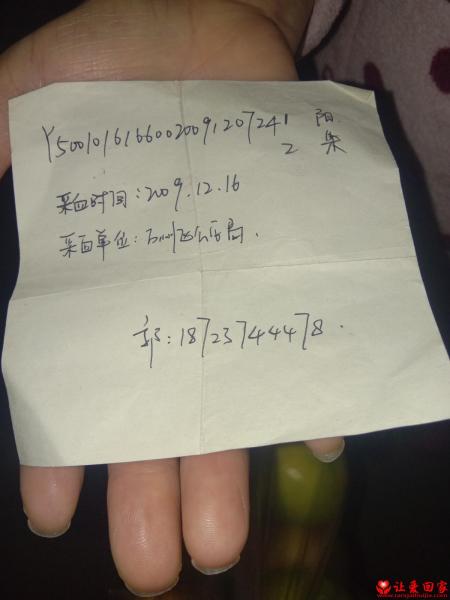 Y50010161660020091207241 阳
2 柴
采血时间:2009.12.16
采血单位:万州区公安局.
郭:18723744478.
让爱回家
www.rangaihuijia.com